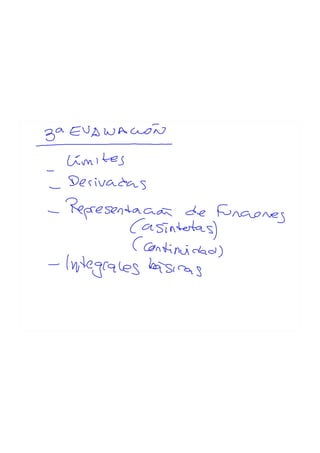 3ª EVALUACIÓN
- Límites
- Derivadas
- Representación de Funciones
(asíntotas)
(continuidad)
- Integrales básicas